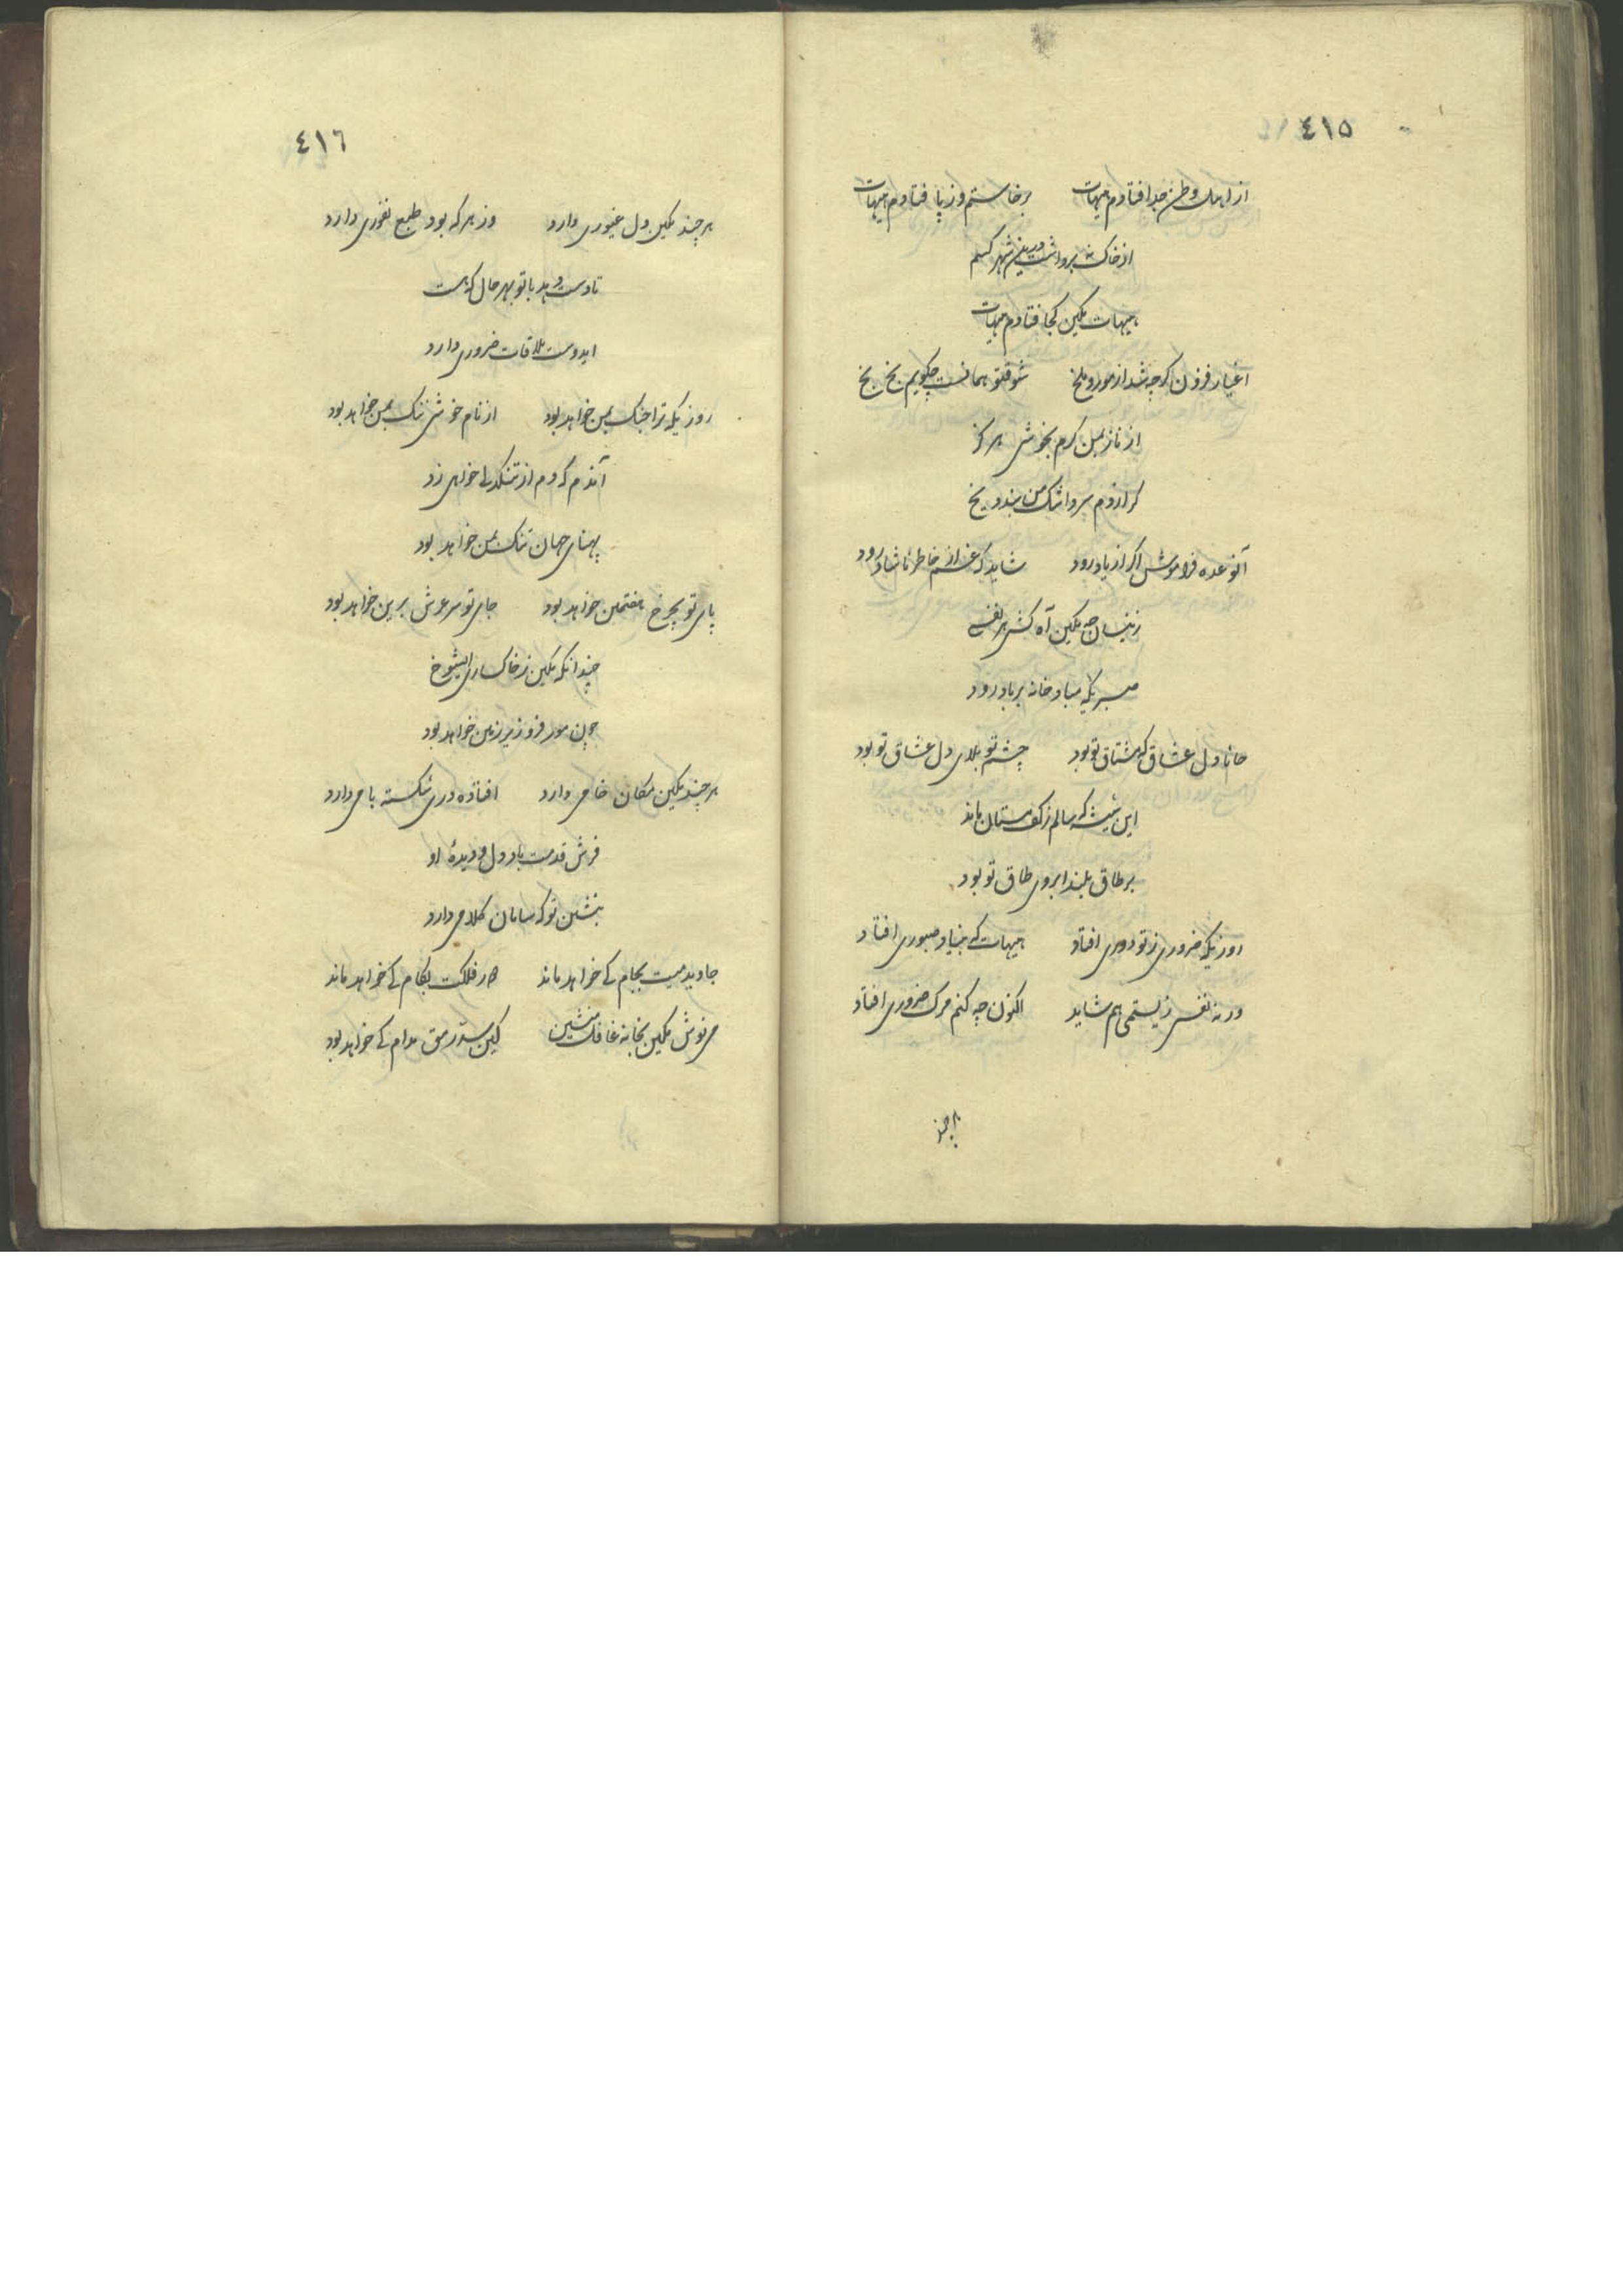 ٤١٥
از اهل وطن جدا فتادم هیهات برخاستم و ز پا فتادم هیهات
از خاک نه برداشت درین شهر کسم
هیهات مکین کجا فتادم هیهات
اغیار فزون کرچه شد از مور و ملخ شوقتو همانست چکویم بخ بخ
از ناز بمن کرم نجوشی هرکز
کر از دم سرد اشک من بندد یخ
آنوعده فراموش اکر از یاد رود شاید که غم از خاطر ناشاد رود
زینسان چه مکین آه کشی هر نفسی
صبریکه مباد خانه بر باد رود
جانا دل عشاق که مشتاق تو بود چشم تو بلای دل عشاق تو بود
این شیشه که سالم ز کف مستان ماند
بر طاق بلند ابروی طاق تو بود
روزیکه ضروری ز تو دوری افتاد هیهات که بنیاد صبوری افتاد
ورنه نفسی زیستمی هم شاید اکنون چه کنم مرک ضروری افتاد
هرچند
٤١٦
هرچند مکین دل غیوری دارد وز هر که بود طبع نفوری دارد
تا دست دهد با تو بهر حال که هست
ایدوست ملاقات ضروری دارد
روزیکه ترا جنک بمن خواهد بود از نام خوشی ننک بمن خواهد بود
آندم که دم از تنکدلی خواهی زد
پهنای جهان تنک بمن خواهد بود
پای تو بچرخ هفتمین خواهد بود جای تو سر عرش برین خواهد بود
چندانکه مکین ز خاکساری ایشوخ
چون مور فرو زیر زمین خواهد بود
هرچند مکین مکان خامی دارد افتاده دری شکسته بامی دارد
فرش قدمت باد دل و دیدهٔ او
بنشین تو که سامان کلامی دارد
جاوید میت بجام کی خواهد ماند دور فلکت بکام کی خواهد ماند
می نوش مکین بخانه غافل منشین کین سد رمق مدام کی خواهد بود